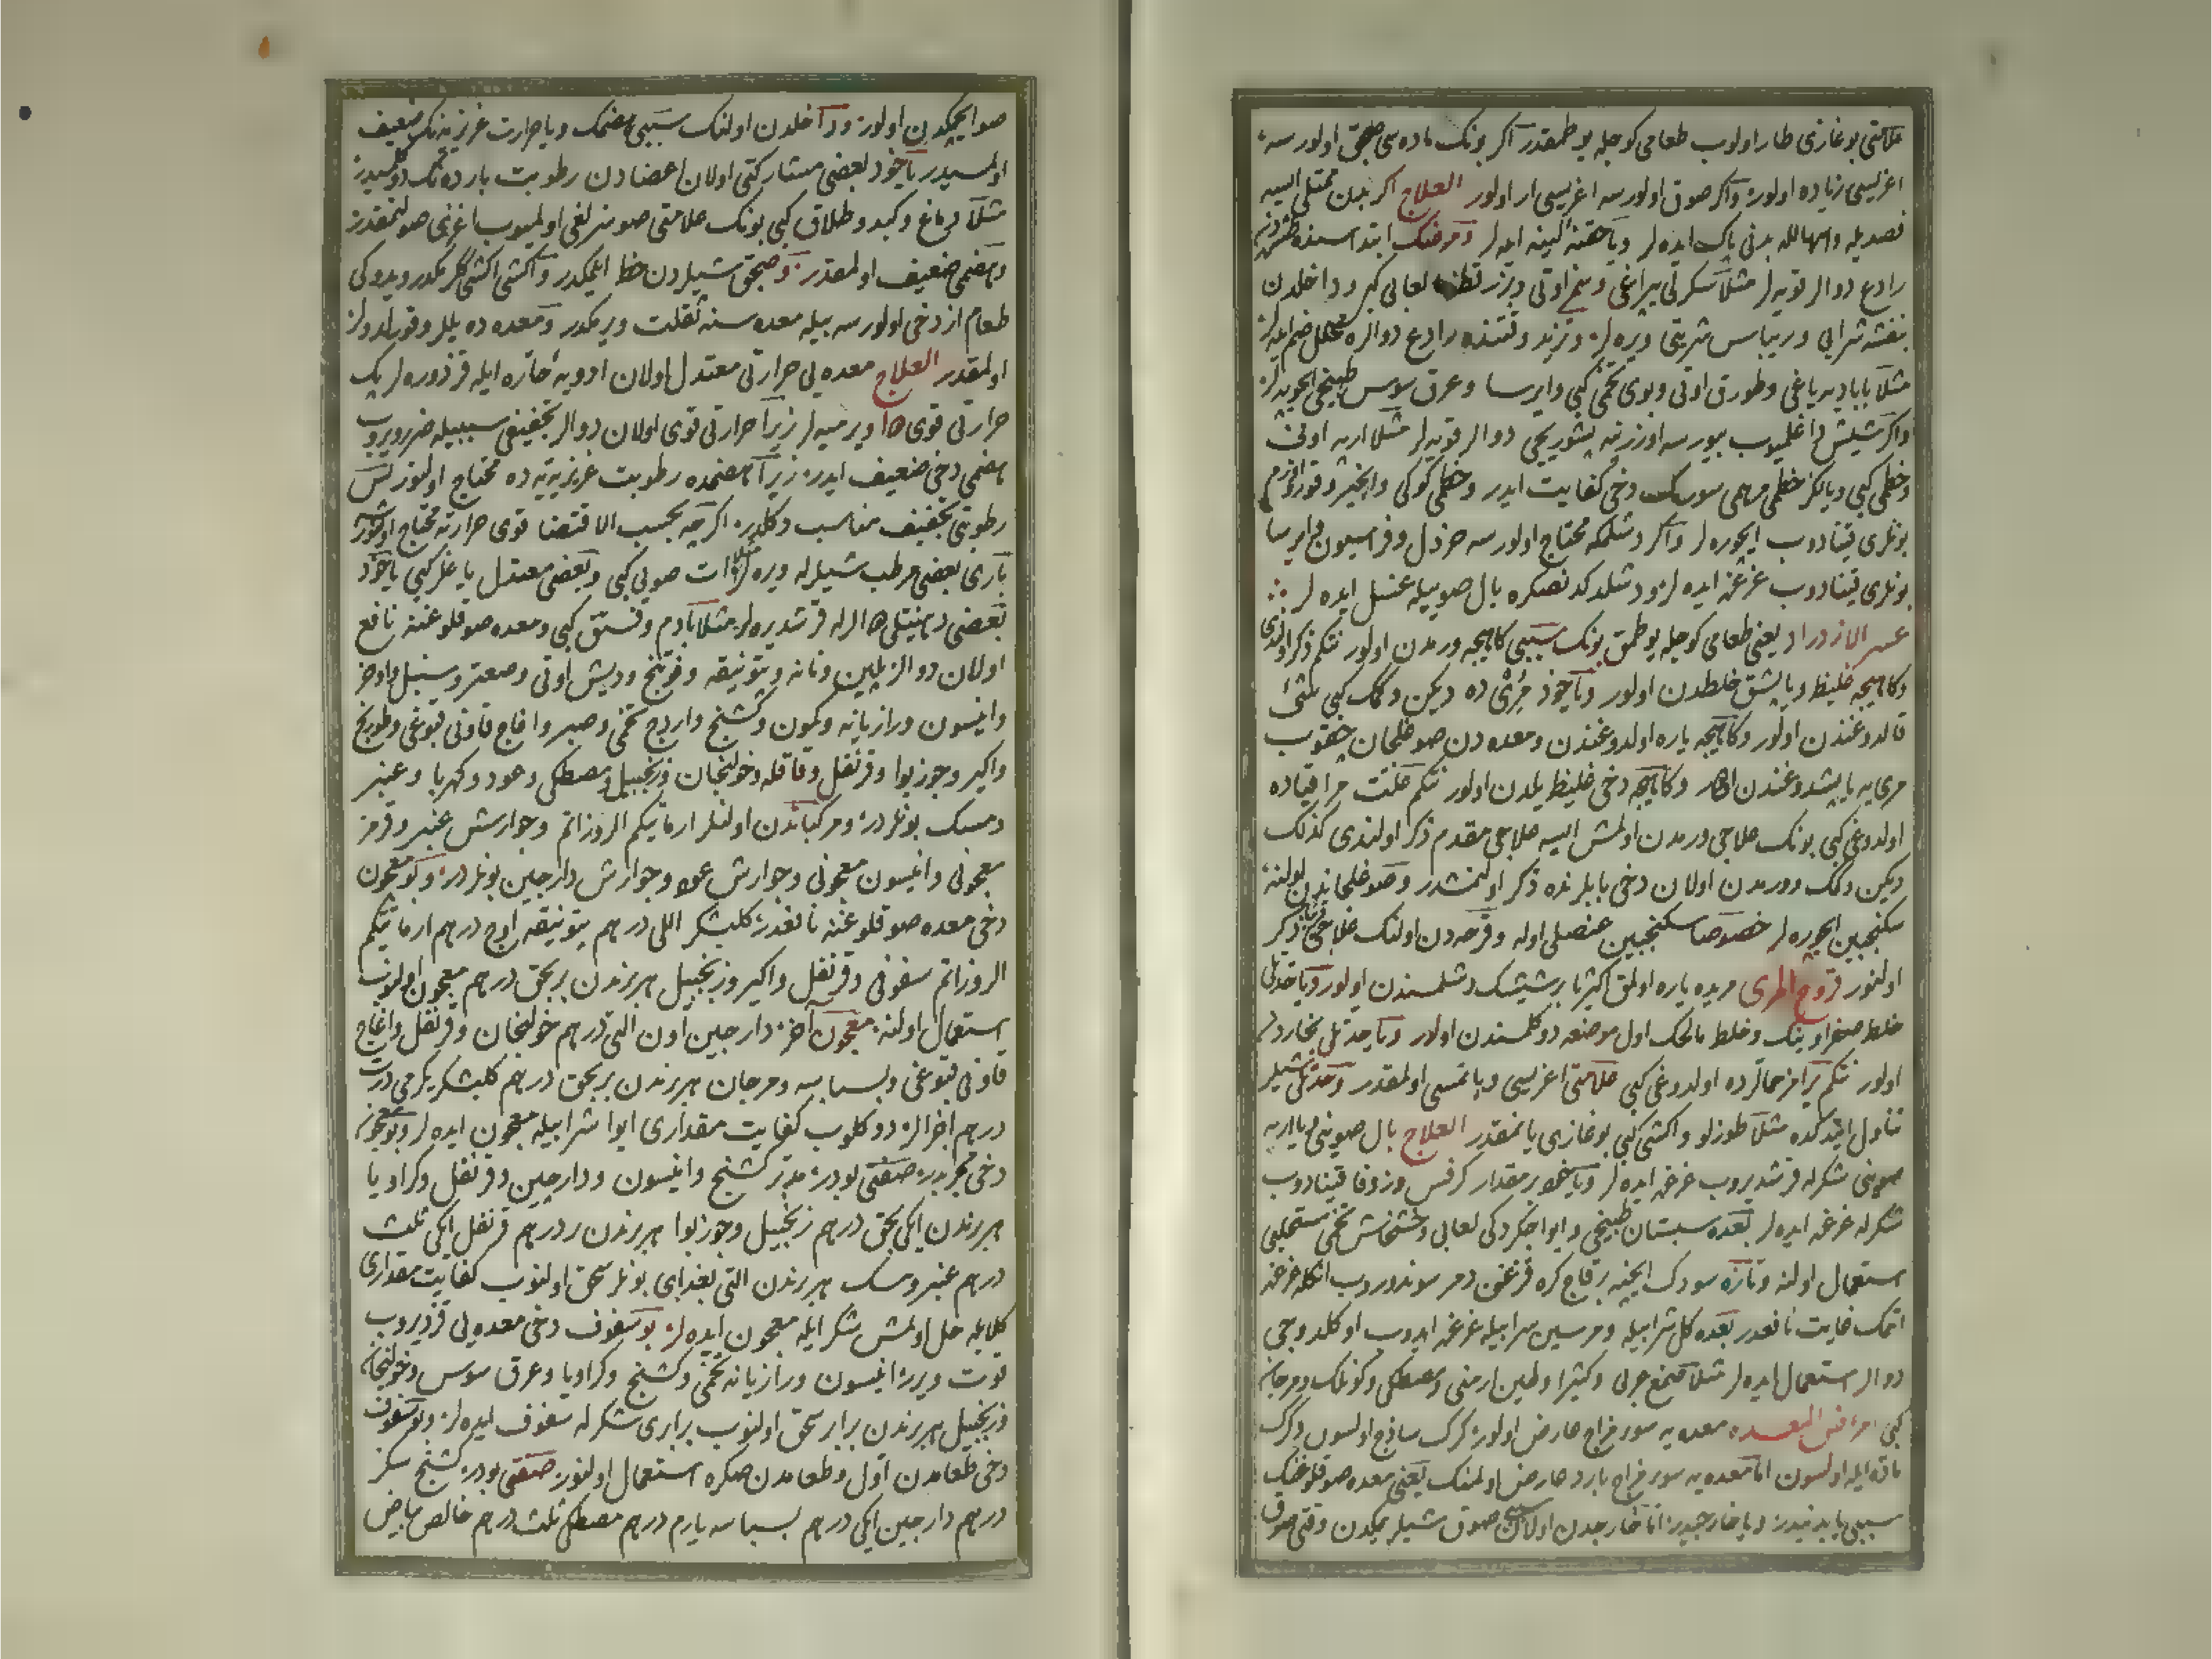 علامتی بوغازی طار اولوب طعامی کوجله یوطمقدر اکر بونک ماده سی صجق اولورسه
اغریسی زیاده اولور واکر صوق اولورسه اغریسی از اولور العلاج اکر بدن ممتلی ایسه
فصدیله واسهالله بدنی پاک ایده لر ویا حقنهٔ لینه ایله لر ومرضک ابتداسنده
رادع دوالر قویه لر مثلا سکرلی یپراغی وسنجر اوتی وبزرقطونا لعابی کبی وداخلدن
بنفشه شرابی وریباس شربتی ویره لر وتزید وقتنده رادع دوالره محلل ضم ایده لر
مثلا بابادیه یاغی وطورق اوتی وبوی تخمی کبی وایرسا وعرق سوس طبیخی ایچوره لر
واکر شیش طاغلمیوب بیورسه اوزرینه بشوریجی دوالر قویه لر مثلا اربه اونی
وخطمی کبی ویالکز خطمی مرهمی سورمک دخی کفایت ایدر وخطمی کوکی وانجیر وقوری اوزم
بونلری قینادوب ایچوره لر واکر دشلمکه محتاج اولورسه خردل وفراسیون وایرسا
بونلری قینادوب غرغره ایده لر ودشلدکدنصکره بال صوییله غسل ایده لر
عسر الازدراد یعنی طعامی کوجله یوطمق بونک سببی کاهیجه ورمدن اولور نتکم ذکر اولندی
وکاهیجه غلیظ ویاپشق خلطدن اولور ویاخود مرئ ده دیکن وکمک کبی شئ
قالدوغندن اولور وکاهیجه یاره اولدوغندن ومعده دن صوغلجان چقوب
مری یه یاپشدوغندن اولور وکاهیجه دخی غلیظ یلدن اولور نتکم علت مراقیاده
اولدوغی کبی بونک علاجی ورمدن اولمش ایسه علاجی مقدم ذکر اولندی کذلک
دیکن وکمک وورمدن اولان دخی بابلرنده ذکر اولنمشدر وصوغلجاندن اولنه
سکنجبین ایچوره لر خصوصا سکنجبین عنصلی اوله وقرحه دن اولنک علاجی ذکر
اولنور قروح المری مریده یاره اولمق اکثریا بر شیشک دشلمسندن اولور ویا حدتلی
خلط صفراوینک وخلط مالحک اول موضعه دوکلمسندن اولور ویا حدتلی بخاردن
اولور نتکم بر امز حالرده اولدوغی کبی علامتی اغریسی ویانمسی اولمقدر وحدتلی شیلر
تناول ایتدکده مثلا طوزلو واکشی کبی بوغازی یانمقدر العلاج بال صوینی یا اربه
صوینی شکرله قرشدیروب غرغره ایده لر ویاخود بر مقدار کرفس وزوفا قینادوب
شکرله غرغره ایده لر بعده سبستان طبیخی وایوا چکردکی لعابی وخشخاش تخمی مستحلبی
استعمال اولنه وتازه سودک ایچنه بر قاچ کره قزغون دمر سوندوروب انکله غرغره
اتمک غایت نافعدر بعده کل شرابیله ومرسین شرابیله غرغره ایدوب اوکلدوجی
دوالر استعمال ایده لر مثلا صمغ عربی وکثیرا وطین ارمنی ومصطکی وکونلک ومرجان
کبی امراض المعده معده یه سوء مزاج عارض اولور کرک ساذج اولسون وکرک
ماده ایله اولسون اما معده یه سوء مزاج بارد عارض اولمنک یعنی معده صوقلوغنک
سببی یا بدنیدر ویا خارجیدر اما خارجدن اولان صوق شیلر یمکدن وقتی صوق
صو ایچمکدن اولور وداخلدن اولنک سببی هضمک ویا حرارت غریزیه نک ضعیف
اولمسیدر یاخود بعضی مشارکتی اولان اعضادن رطوبت بارده نک دوکلمسیدر
مثلا دماغ وکبد وطلاق کبی بونک علامتی صوسزلغی اولمیوب اغزی صولنمقدر
وهضمی ضعیف اولمقدر وصجق شیلردن حظ ایلمکدر واکشی اکشی ککرمکدر ویدوکی
طعام ازدخی اولورسه بیله معده سنه ثقلت ویرمکدر ومعده ده یللر وقورلدولر
اولمقدر العلاج معده یی حرارتی معتدل اولان ادویهٔ حاره ایله قزدوره لر پک
حرارتی قوی دوا ویرمیه لر زیرا حرارتی قوی اولان دوالر تجفیفی سببیله ضرر ویروب
هضمی دخی ضعیف ایدر زیرا هضمده رطوبت غریزیه یه ده محتاج اولنور پس
رطوبتی تجفیف مناسب دکلدر اکرچه بحسب الاقتضا قوی حرارته محتاج اولنورسه
باری بعضی مرطب شیلرله ویره لر مثلا ات صویی کبی وبعضی معتدل یاغلر کبی یاخود
بعضی دهنیتلی دوالرله قرشدیره لر مثلا بادم وفستق کبی ومعده صوقلوغنه نافع
اولان دوالر افسنتین ونانه وبتونیقه وفوتنج ودیش اوتی وصعتر وسنبل واذخر
وانیسون ورازیانه وکمون وکشنج واردج تخمی وصبر واغاج قاونی قبوغی وطورنج
واکیر وجوزبوا وقرنفل وقاقله وخولنجان وزنجبیل ومصطکی وعود وکهربا وعنبر
ومسک بونلردر ومرکباتدن اولنلر ارماتیکم الروزاتم وجوارش عنبر وقرمز
معجونی وانیسون معجونی وجوارش عود وجوارش دارچین بونلردر وبو معجون
دخی معده صوقلوغنه نافعدر کلبشکر اللی درهم بتونیقه اوچ درهم ارماتیکم
الروزاتم سفوفی وقرنفل واکیر وزنجبیل هربرندن بربچق درهم معجون اولنوب
استعمال اولنه معجون آخر دارچین اون التی درهم خولنجان وقرنفل واغاج
قاونی قبوغی وبسباسه ومرجان هربرندن بربچق درهم کلبشکر یکرمی درت
درهم اجزالر دوکلوب کفایت مقداری ایوا شرابیله معجون ایده لر وبو معجون
دخی مجربدر صنعتی بودر مدبر کشنج وانیسون ودارچین وقرنفل وکراویا
هربرندن ایکی بچق درهم زنجبیل وجوزبوا هربرندن بر درهم قرنفل ایکی ثلث
درهم عنبر ومسک هربرندن التی بغدای بونلر سحق اولنوب کفایت مقداری
کلابله حل اولمش شکر ایله معجون ایده لر بو سفوف دخی معده یی قزدیروب
قوت ویرر انیسون ورازیانه تخمی وکشنج وکراویا وعرق سوس وخولنجان
وزنجبیل هربرندن برابر سحق اولنوب برابری شکرله سفوف ایده لر وبو سفوف
دخی طعامدن اول وطعامدن صکره استعمال اولنور صنعتی بودر کشنج سکز
درهم دارچین ایکی درهم بسباسه یارم درهم مصطکی ثلث درهم خالص بیاض